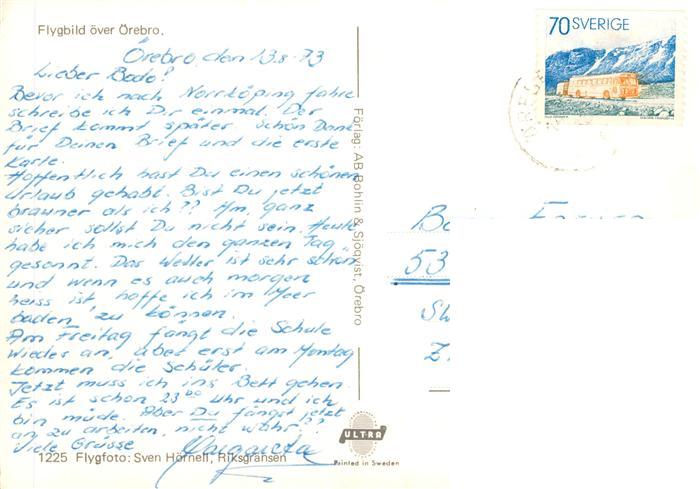 Flygbild över Örebro.
Örebro, den 13.8 -73
Lieber Bodo!
Bevor ich nach Norrköping fahre
schreibe ich Dir einmal. Der
Brief kommt später. Schön Dank
für Deinen Brief und die erste
Karte.
Hoffentlich hast Du einen schönen
Urlaub gehabt. Bist Du jetzt
brauner als ich?? Hm, ganz
sicher sollst Du nicht sein. Heute
habe ich mich den ganzen Tag
gesonnt. Das Wetter ist sehr schön
und wenn es auch morgen
heiss ist hoffe ich im Meer
baden zu können.
Am Freitag fängt die Schule
wieder an, aber erst am Montag
kommen die Schüler.
Jetzt muss ich ins Bett gehen.
Es ist schon 23⁰⁰ Uhr und ich
bin müde. Aber Du fängst jetzt
an zu arbeiten, nicht wahr??
Viele Grüsse
1225 Flygfoto: Sven Hörnell, Riksgränsen
Förlag: AB Bohlin & Sjöqvist, Örebro
ULTRA
Printed in Sweden
70 SVERIGE
53